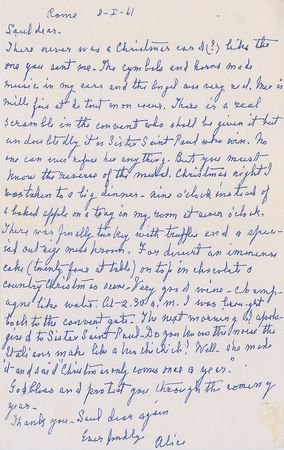 Rome 2-I-61
Saul dear.
There never was a Christmas card (?) like the
one you sent me. The cymbals and horns made
music in my ears and the Angel was very red. Merci
mille fois et de tout mon coeur. There is a real
scramble in the convent who shall be given it but
undoubtedly it is Sister Saint Paul who won. No
one can ever refuse her anything. But you must
know the reverse of the medal. Christmas night I
was taken to a big dinner - nine o'clock instead of
a baked apple on a tray in my room at seven o'clock.
There was finally turkey with truffles and a spec-
ial outsize mushroom. For dessert an immense
cake (twenty four at table) on top in chocolate a
country Christmas scene. Very good wine - champ-
agne like water. At 2.30 a.m. I was
back to the convent gate. The next morning I apolo-
gised to Sister Saint Paul - Do you know the noise the
Italians make like a hen chi chi chi? Well - she made
it and said Christmas only comes once a year."
God bless and protect you through the coming
year -
Thank you - Saul dear again
Ever fondly
Alice